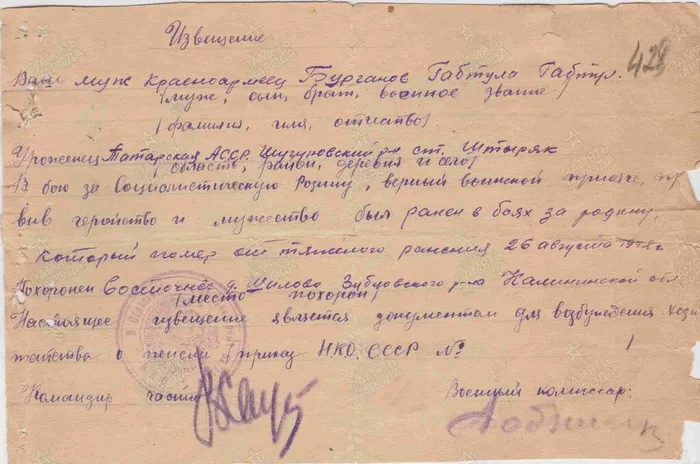 Извещение
428
Ваш муж красноармеец Бурганов Габтула Габтул.
/муж, сын, брат, военное звание/
/фамилия, имя, отчество/
Уроженец Татарская АССР. Шугуровский р-н ст. Штыряк
/область, район, деревня и село/
В бою за Социалистическую Родину, верный воинской присяге, про
вив геройство и мужество был ранен в боях за родину,
который помер от тяжелого ранения 26 августа
Похоронен Восточнее д. Шилово Зубцовского р-на Калининской обл
/место похорон/
Настоящее извещение является документом для возбуждения ход
тайства о пенсии /приказ НКО. СССР № /
Командир части Военный комиссар: